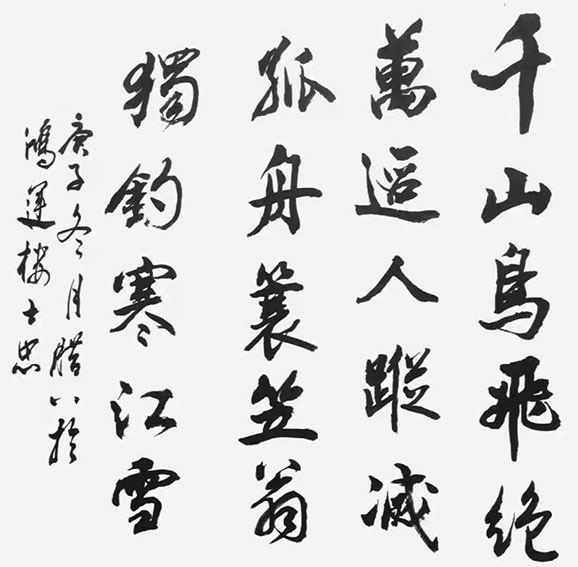 千山鳥飛絶
萬逕人蹤滅
孤舟蓑笠翁
獨釣寒江雪
庚子冬月腊八於
鴻運樓士忠